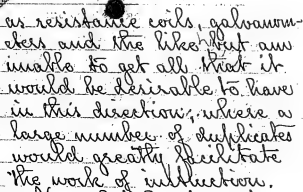 as resistance coils, galvanom-
eters and the like, but am
unable to get all that it
would be desirable to have
in this direction, where a
large number of duplicates
would greatly facilitate
the work of instruction.